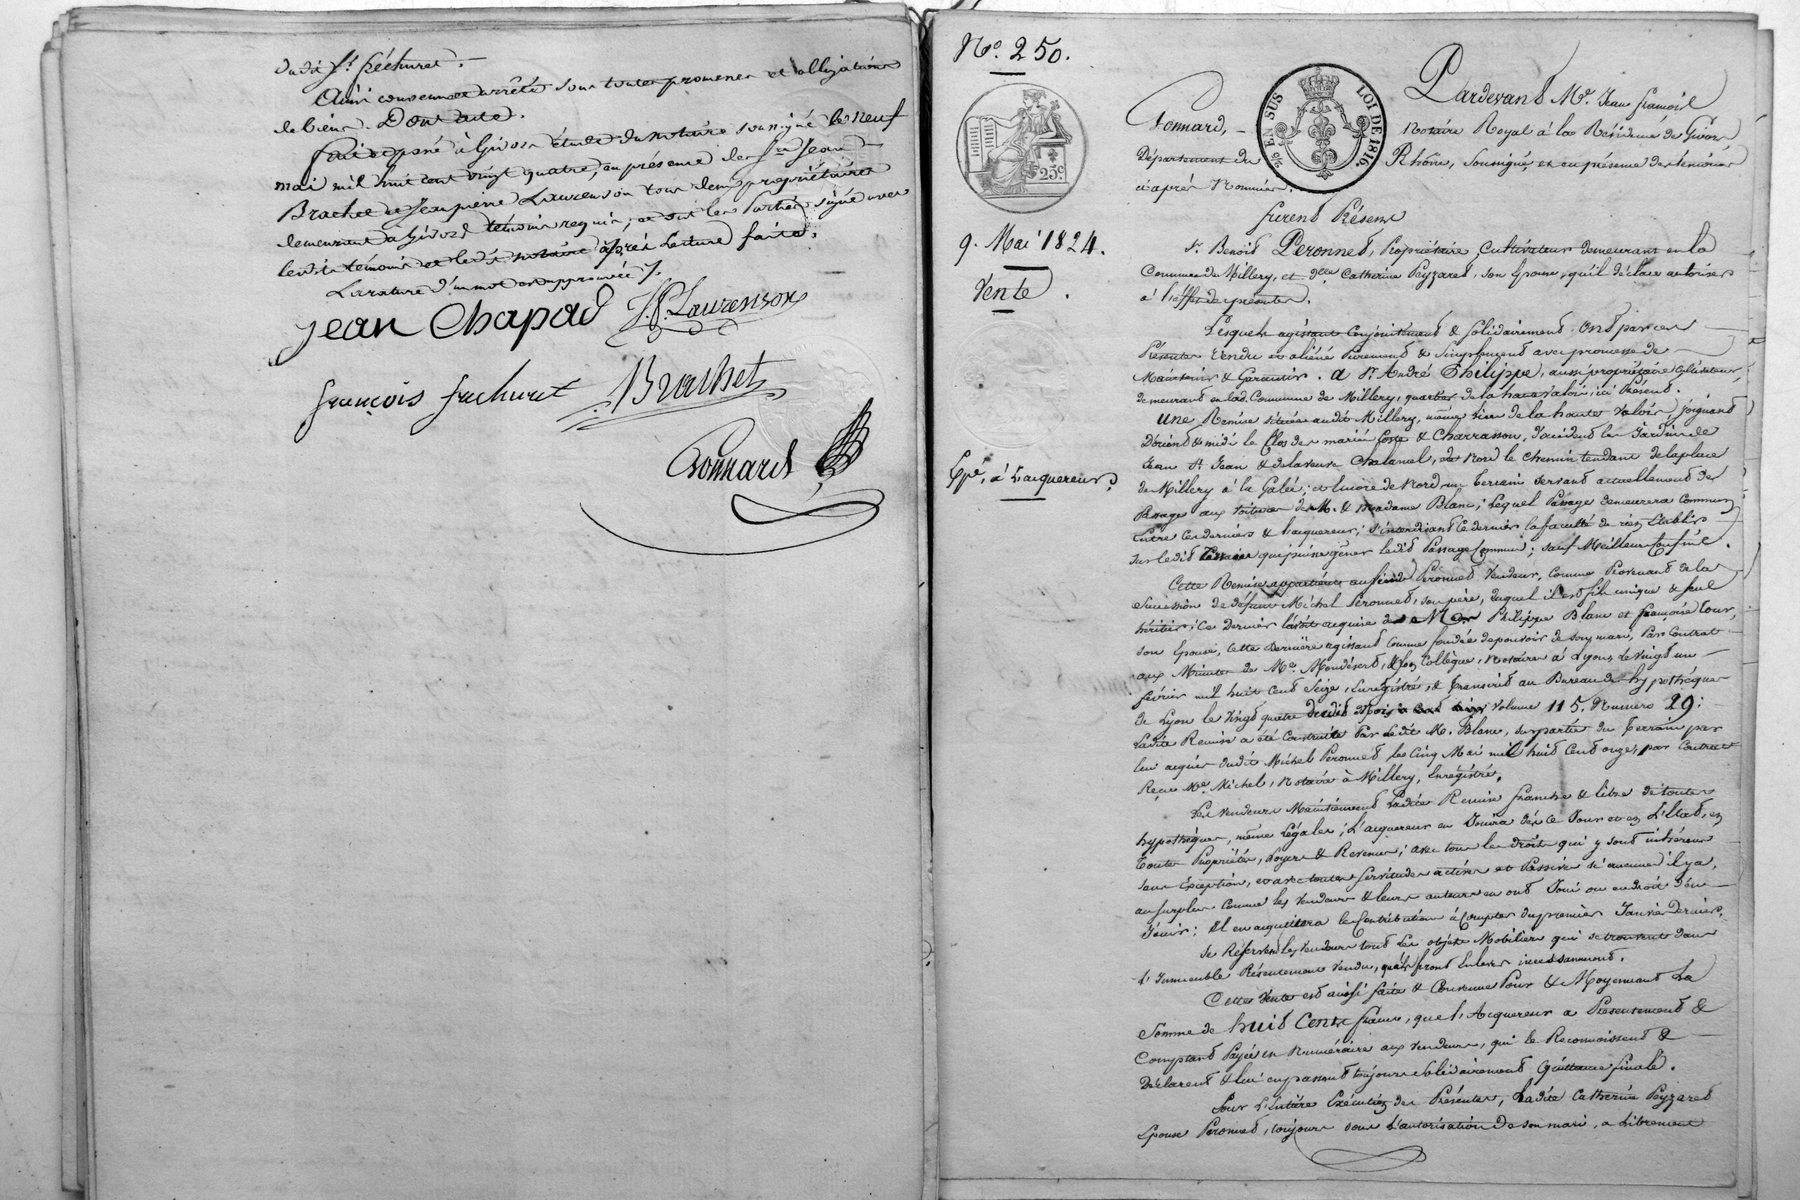 dudit Sr. fréchuret. -
Ainsi convenu et arrêté sous toutes promesses et obligations
de biens. Dont acte.
fait et passé à Givors étude du notaire soussigné le neuf
mai mil huit cent vingt quatre, en présence de Srs Jean
Brachet et Jean pierre Laurenson tous deux propriétaires
demeurant à Givors témoins requis, et ont les parties signé avec
lesdits témoins et ledit notaire après lecture faite.
La rature d'un mot est approuvée /.
jean Chapad J. P. Laurenson
françois frechuret Brachet
Connard
No. 250.
25 c
9. Mai 1824.
Vente.
Epé. à l'acquereur.
EN SUS LOI DE 1816.
Pardevant Me. Jean françois
Connard, - Notaire Royal à la Résidence de Givors
Département du Rhône, soussigné, et en présence des témoins
ci après Nommés.
furent Présens
Sr. Benoit Peronnet, Propriétaire Cultivateur demeurant en la
Commune de Millery, et dlle. Catherine Peyzaret, son épouse, qu'il déclare autoriser
à l'effet des présentes.
Lesquels agissant Conjointement & solidairement ont par ces
Présentes Vendu et aliéné Purement & Simplement avec promesse de
Maintenir & Garantir. a Sr. André Philippe, aussi propriétaire Cultivateur,
demeurant en lad. Commune de Millery, quartier de la haute Valois, ici Présent.
une Remise située audit Millery, même lieu de la haute Valois, joignant
D'orient & midi le Clos des mariés & Charrasson, d'occident le Jardin de
Jean St. Jean & de la veuve Chalamel, de Nord le chemin tendant de la place
de Millery à la Galée; et encore de Nord un terrain servant actuellement de
Passage aux voitures de M. & Madame Blanc; Lequel Passage demeurera Commun
Entre ces derniers & l'acquereur; s'interdisant ce dernier la faculté de rien Etablir
sur ledit Terrain qui puisse gêner ledit Passage Commun; sauf Meilleur Confins.
Cette Remise appartient audit Peronnet Vendeur, Comme Provenant de la
succession de défunt Michel Peronnet, son père, duquel il est fils unique & seul
héritier; Ce Dernier l'avait acquise de Mr. Philippe Blanc et françoise Cour,
son Epouse, cette Dernière agissant Comme fondée de pouvoir de son mari, Par Contrat
aux Minutes de Me. Mondésert, & son Collègue, Notaires à Lyon, Le vingt un
février mil huit cent Seize, Enregistré, & Transcrit au Bureau des hypothèques
de Lyon le vingt quatre dudit Mois volume 115. Numéro 29:
Ladite Remise a été Construite Par ledit M. Blanc, sur partie du Terrain par
lui acquis dudit Michel Peronnet le Cinq Mai mil huit Cent onze, par Contrat
Reçu Me. Michel, Notaire à Millery, Enregistré.
Les Vendeurs Maintiennent Ladite Remise franche & libre de toutes
hypothèques, même Légales; L'acquereur en Jouira dès ce Jour et en L'Etat, en
Toute Propriété, Loyers & Revenus; avec tous les droits qui y sont inhérens
sans Exception, et avec toutes servitudes actives et Passives si aucunes il y a,
au surplus Comme les Vendeurs & leurs auteurs en ont Joui ou eu droit d'en
Jouir; il en acquittera les Contributions à Compter du premier Janvier Dernier.
Se Réservent les Vendeurs tous les objets Mobiliers qui se trouvent dans
L'Immeuble Présentement Vendu, qu'ils feront Enlever incessamment.
Cette Vente est aussi faite & Convenue Pour & Moyennant La
Somme de huit Cents francs, que l'Acquereur a Présentement &
Comptant Payée en Numéraire aux Vendeurs, qui le Reconnoissent &
Déclarent & lui en passent toujours solidairement Quittance finale.
Pour L'Entière Exécution des Présentes, Ladite Catherine Peyzaret
Epouse Peronnet, toujours sous l'autorisation de son mari, a Librement